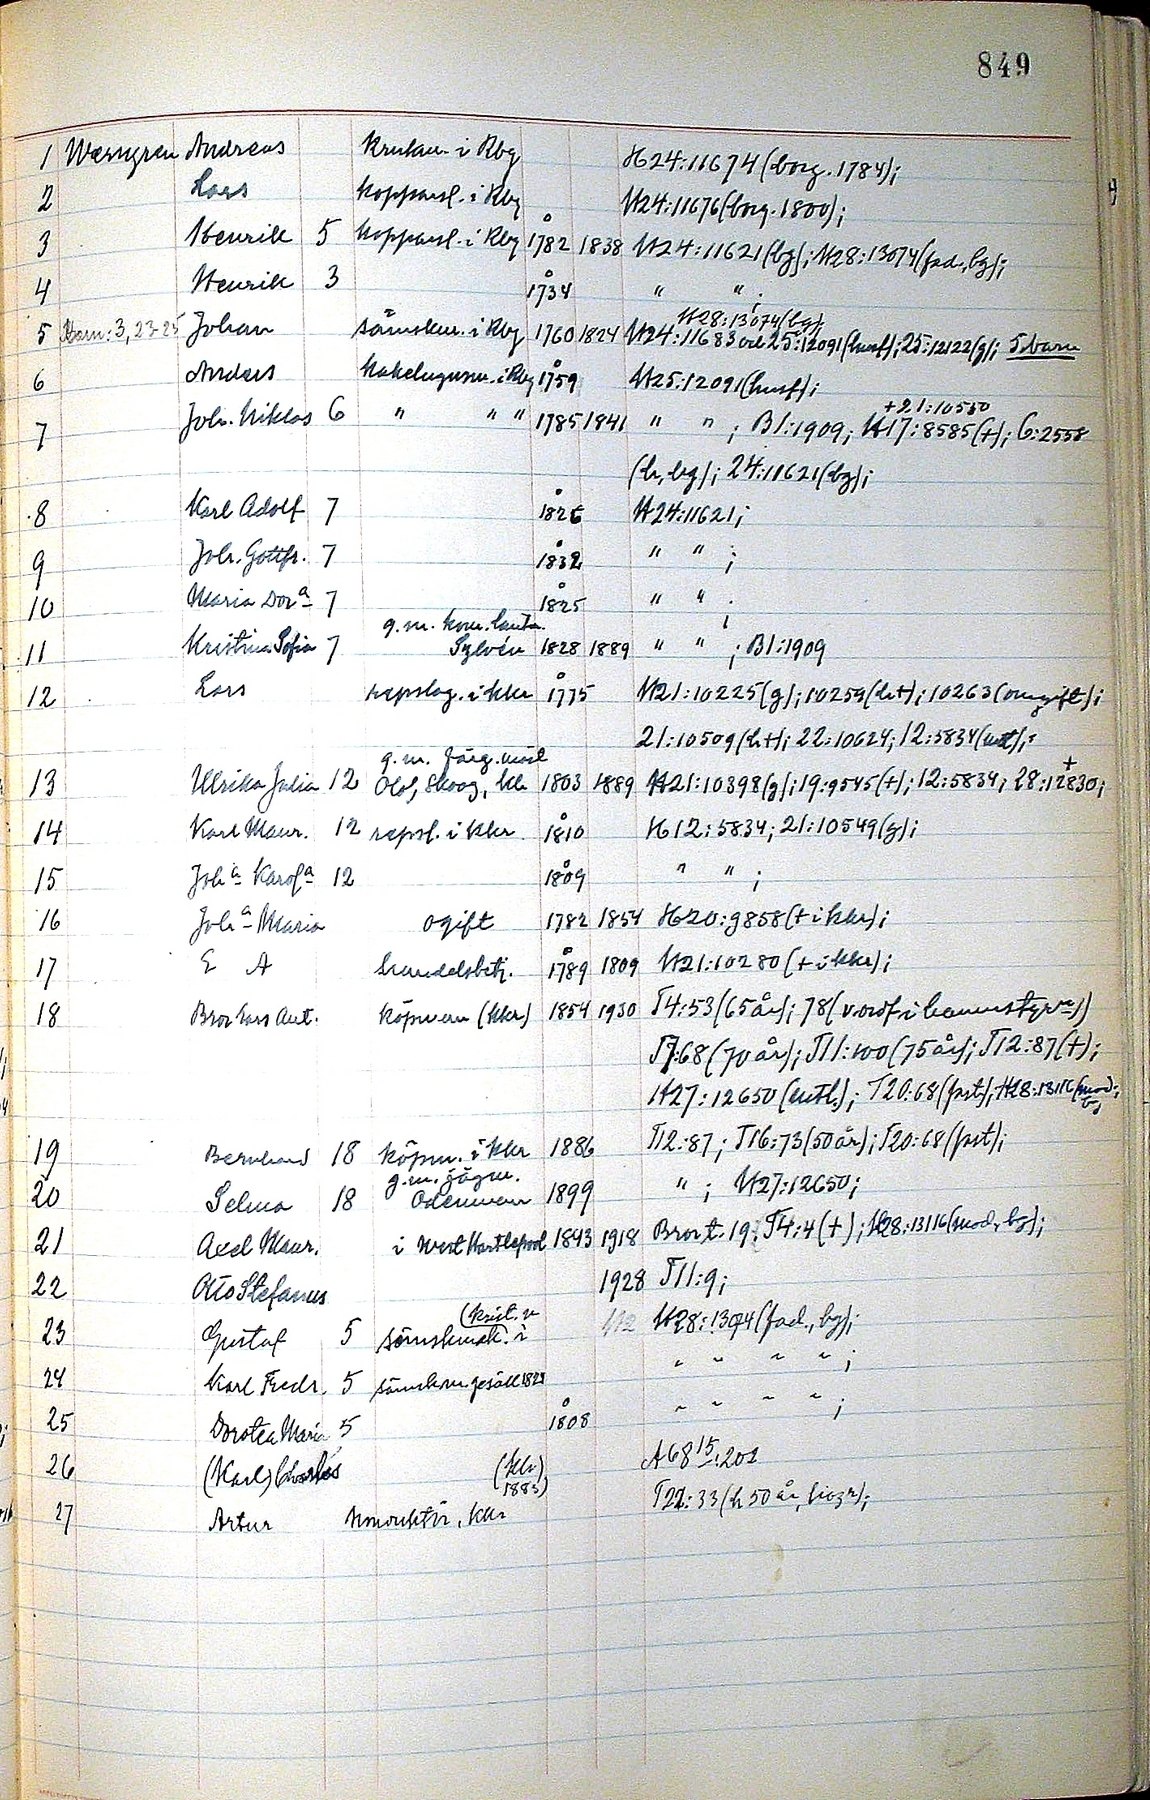 849
1 Wærngren Andreas Krukm. i Kbg H24:11674 (borg. 1784);
2 Lars kopparsl. i Kbg H24:11676 (borg. 1800);
3 Henrik 5 kopparsl. i Kbg 1782 1838 H24:11621 (bg); H28:13074 (fad., bg);
4 Henrik 3 1734 " " ;
H28:13074 (bg);
5 Barn: 3, 23-25 Johan sämskm. i Kbg 1760 1824 H24:11683 och 25:12091 (husf); 25:12122 (g); 5 barn
6 Anders Kakelugnsm. i Kbg 1759 H25:12091 (husf);
+21:10550
7 Joh. Niklas 6 " " " 1785 1841 " " ; B1:1909; H17:8585 (+); 6:2558
(h, bg); 24:11621 (bg);
8 Karl Adolf 7 1826 H24:11621;
9 Joh. Gottfr. 7 1832 " " ;
10 Maria Dora 7 1825 " " ;
g.m. kom. lantm.
11 Kristina Sofia 7 Sylvén 1828 1889 " " ; B1:1909
12 Lars repslag. i kkr 1775 H21:10225 (g); 10259 (h+); 10263 (omgift);
21:10509 (h+); 22:10624; 12:5834
g.m. färg.mäst
13 Ulrika Julia 12 Olof Skoog, kkr 1803 1889 H21:10398 (g); 19:9545 (+); 12:5834; 28:12830; +
14 Karl Maur. 12 repsl. i kkr 1810 H12:5834; 21:10549 (g);
15 Joha Karola 12 1809 " " ;
16 Joha Maria ogift 1782 1854 H20:9858 (+ i kkr);
17 E A handelsbetj. 1789 1809 H21:10280 (+ i kkr);
18 Bror Lars Ant. köpman (kkr) 1854 1930 T4:53 (65 år); 78 (v. ordf i hamnstyrn)
T7:68 (70 år); T11:100 (75 år); T12:87 (+);
H27:12650 (entl.); T20:68 (fast); H28:13116 (mod., b)
19 Bernhard 18 köpm. i kkr 1886 T12:87; T16:73 (50 år); T20:68 (fast);
g.m. jägm.
20 Selma 18 Odenman 1899 " ; H27:12650;
21 Axel Maur. i West Hartlepool 1843 1918 Bror t. 19: T4:4 (+); H28:13116 (mod., bg);
22 Otto Stefanus 1928 T11:9;
(Krist. n
23 Gustaf 5 sämskmak. i H28:1304 (fad., bg);
24 Karl Fredr. 5 sämskm. gesäll 1829 " " " " ;
25 Dorotea Maria 5 1808 " " " " ;
26 (Karl) Charles (kkr) 1883) A68 15:201
27 Artur Kontrktör, kkr T22:33 (h 50 år, biogr);